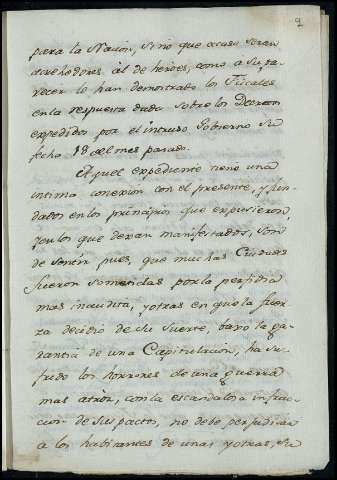 2
para la Nacion, sino que acaso seran
acrehedores al de heroes, como a su pa-
recer lo han demostrado los Fiscales
en la respuesta dada sobre los Decretos
expedidos por el intruso Gobierno su
fecha 18 del mes pasado.
Aquel expediente tiene una
intima conexion con el presente, y fun-
dados en los principios que expusieron,
y en los que dexan manifestados, son
de sentir pues, que muchas Ciudades
fueron sometidas por la perfidia
mas inaudita, y otras en que la fuer-
za decidio de su suerte, baxo la ga-
rantia de una Capitulacion, ha su-
frido los horrores de una guerra
mas atroz, con la escandalosa infrac-
cion de sus pactos, no debe perjudicar
a los habitantes de unas y otras, su